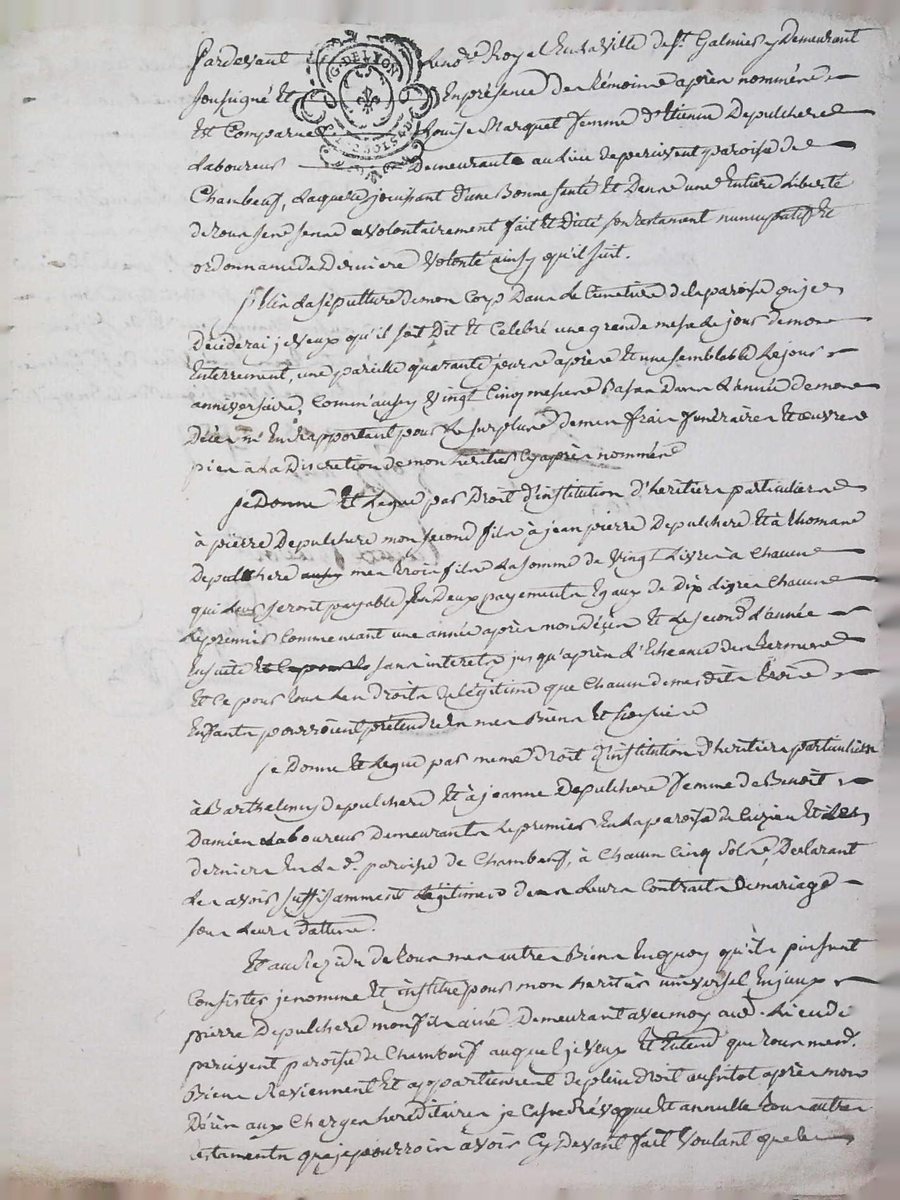 Pardevant le no.re Royal en la ville de St. Galmier y demeurant
soussigné et En presence des témoins après nommés
Est Comparue Louise Marquet femme d'Etienne Depulchere
Laboureur Demeurante au Lieu de perivent paroisse de
Chambeuf, Laquelle jouissant d'une Bonne santé et Dans une Entiere Liberté
de tous ses sens a volontairement fait et dicté son testament nuncupatif et
ordonnance de Derniere Volonté ainsy qu'il suit.
La sépulture de mon Corp Dans Le Cimetiere de la paroise ou je
Deciderai je veux qu'il soit Dit et Celebré une grande messe le jour de mon
Enterrement, une pareille quarante jours après et une semblable Le jour
anniversaire, Comm'aussy Vingt Cinq messes Basses Dans L'année de mon
Décès m'En rapportant pour Le surplus de mes frais funéraires et œuvres
pies à La Discretion de mon heritier Cy après nommé
je Donne et Legue par Droit d'institution d'heritiers particuliers
à pierre Depulchere mon second fils à jean pierre Depulchere et à thomas
Depulchere mes trois fils La somme de Vingt Livres à Chacun
qui Leur seront payable En Deux payements Egaux de Dix Livres Chacun
Le premier Commencant une année après mon Décès et Le second L'année
Ensuite sans interets jusqu'après L'Echeance des termes
Et Ce pour tous Les Droits de Légitime que Chacun de mes dits trois
Enfants pourroient prétendre En mes Biens et
je Donne et Legue par meme Droit d'institution d'heritiers particuliers
à Barthelemy Depulchere et à jeanne Depulchere femme de Benoit
Damien Laboureur Demeurants Le premier En La paroise de Cuzieu et Les
derniers En La d. paroise de Chambeuf, à Chacun Cinq Sols, Declarant
Les avoir suffisamment Légitimés dans Leurs Contracts De mariage
sous Leurs dattes.
Et au Rezidu de tous mes autres Biens En quoy qu'ils puissent
Consister je nomme et institue pour mon heritier universel Enjeux
pierre Depulchere mon fils ainé Demeurant avec moy aud. Lieu de
perivent paroise de Chambeuf auquel je veux et Entend que tous mesd.
Biens Reviennent et appartiennent de plein Droit aussitot après mon
Décès aux Charges hereditaires je Casse Révoque et annulle tous autres
testaments que je pourrois avoir Cy Devant fait Voulant que le
G. DE LYON